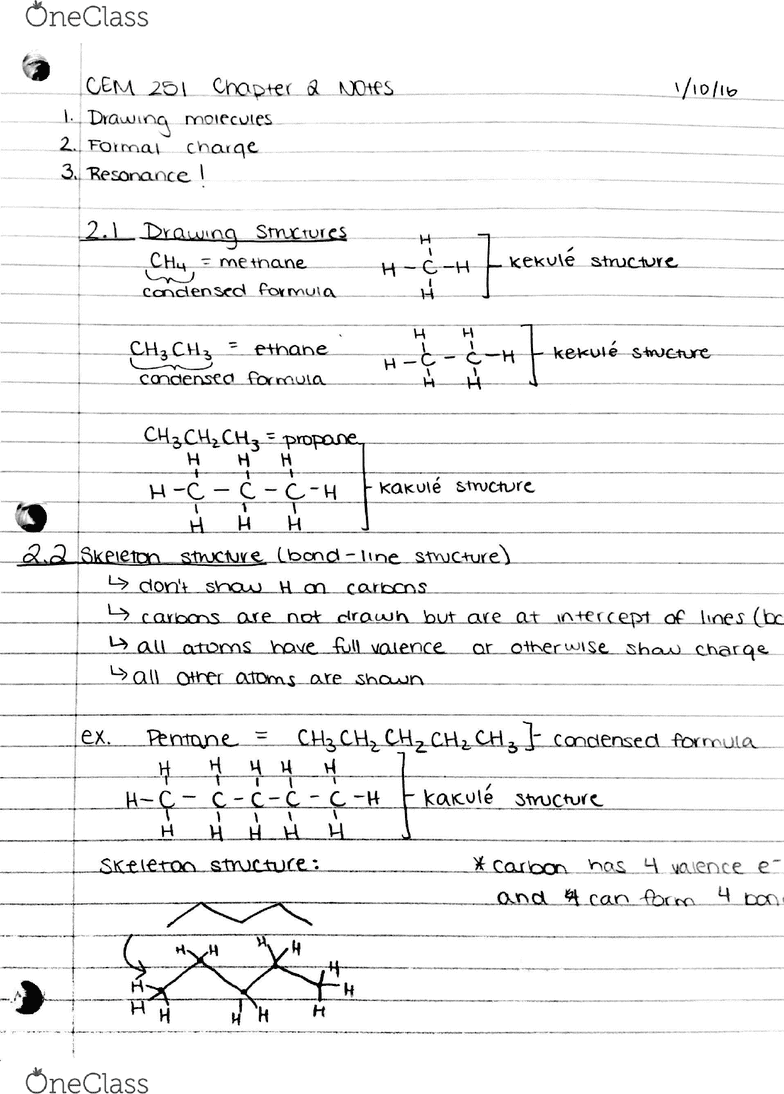 OneClass
CEM 251 Chapter 2 Notes 1/10/16
1. Drawing molecules
2. Formal charge
3. Resonance!
2.1 Drawing Structures
CH4 = methane
condensed formula
H
H-C-H
H
kekulé structure
CH3CH3 = ethane
condensed formula
H H
H-C-C-H
H H
kekulé structure
CH3CH2CH3 = propane
H H H
H-C-C-C-H
H H H
kakulé structure
2.2 Skeleton structure (bond-line structure)
↳ don't show H on carbons
↳ carbons are not drawn but are at intercept of lines (bo
↳ all atoms have full valence or otherwise show charge
↳ all other atoms are shown
ex. Pentane = CH3CH2CH2CH2CH3]- condensed formula
H H H H H
H-C-C-C-C-C-H
H H H H H
kakulé structure
Skeleton structure:
* carbon has 4 valence e-
and can form 4 bon
H H H H
H H H
H H H H H
OneClass